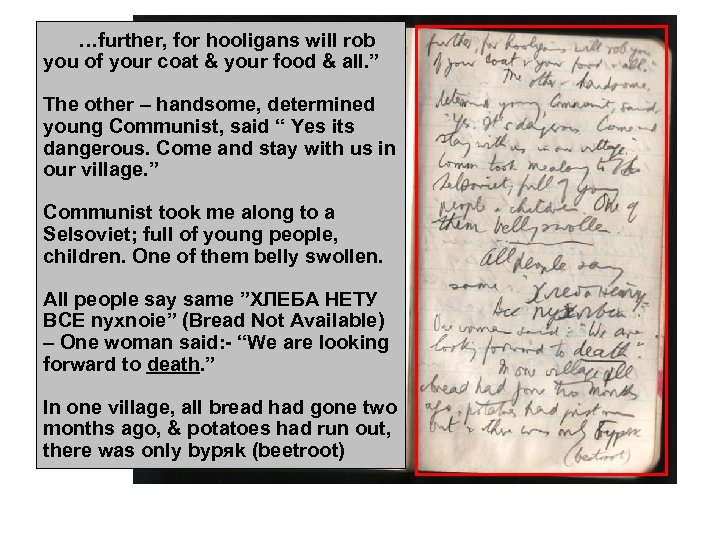 …further, for hooligans will rob
you of your coat & your food & all.”
The other – handsome, determined
young Communist, said “ Yes its
dangerous. Come and stay with us in
our village.”
Communist took me along to a
Selsoviet; full of young people,
children. One of them belly swollen.
All people say same ”ХЛЕБА НЕТУ
ВСЕ пухпоіе” (Bread Not Available)
– One woman said:- “We are looking
forward to death.”
In one village, all bread had gone two
months ago, & potatoes had run out,
there was only буряк (beetroot)
further, for hooligans will rob you
of your coat & your food & all.”
The other – handsome,
determined young Communist, said
“Yes. It's dangerous. Come and
stay with us in our village.”
Comm. took me along to
Selsoviet; full of young
people & children. One of
them belly swollen.
All people say
same
One woman said: “We are
looking forward to death.”
In one village all
bread had gone two months
ago, potatoes had run out
but & there was only буряк
(beetroot)